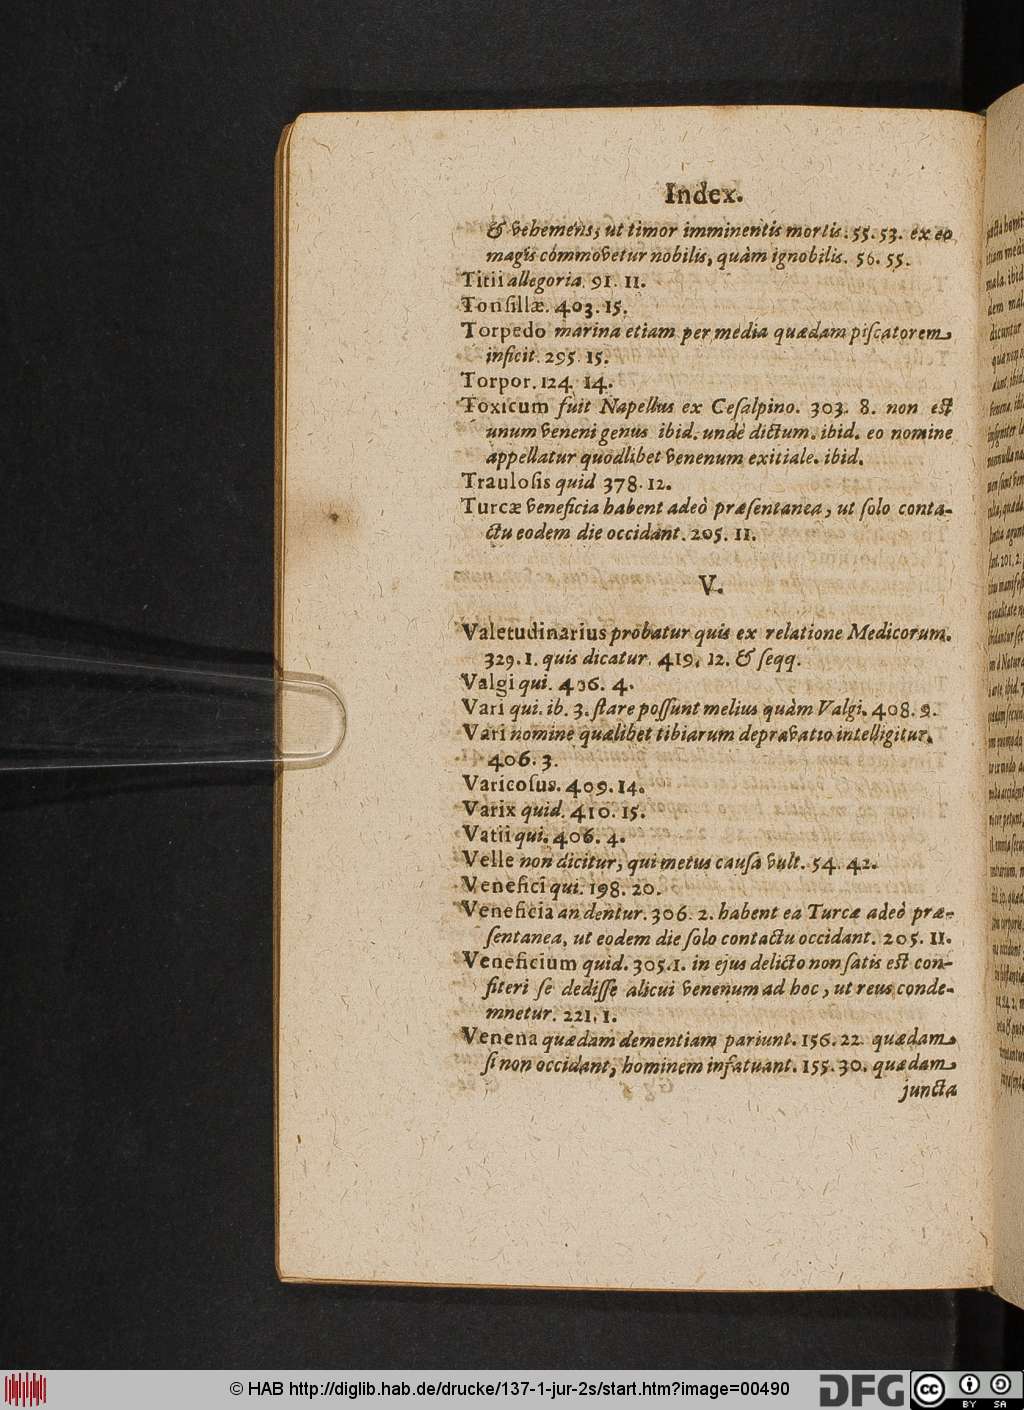 Index.
& vehemens, ut timor imminentis mortis. 55. 53. ex eo
magis commovetur nobilis, quàm ignobilis. 56. 55.
Titii allegoria. 91. 11.
Tonſillæ. 403. 15.
Torpedo marina etiam per media quædam piſcatorem
inficit. 295. 15.
Torpor. 124. 14.
Toxicum fuit Napellus ex Ceſalpino. 303. 8. non eſt
unum veneni genus ibid. undè dictum. ibid. eo nomine
appellatur quodlibet venenum exitiale. ibid.
Trauloſis quid 378. 12.
Turcæ veneficia habent adeò præſentanea, ut ſolo conta-
ctu eodem die occidant. 205. 11.
V.
Valetudinarius probatur quis ex relatione Medicorum.
329. 1. quis dicatur. 419. 12. & ſeqq.
Valgi qui. 406. 4.
Vari qui. ib. 3. ſtare poſſunt melius quàm Valgi. 408. 9.
Vari nomine quælibet tibiarum depravatio intelligitur.
406. 3.
Varicoſus. 409. 14.
Varix quid. 410. 15.
Vatii qui. 406. 4.
Velle non dicitur, qui metus cauſa vult. 54. 42.
Venefici qui. 198. 20.
Veneficia an dentur. 306. 2. habent ea Turcæ adeò præ-
ſentanea, ut eodem die ſolo contactu occidant. 205. 11.
Veneficium quid. 305. 1. in ejus delicto non ſatis eſt con-
fiteri ſe dediſſe alicui venenum ad hoc, ut reus conde-
mnetur. 221. 1.
Venena quædam dementiam pariunt. 156. 22. quædam
ſi non occidant, hominem infatuant. 155. 30. quædam
juncta
© HAB http://diglib.hab.de/drucke/137-1-jur-2s/start.htm?image=00490
DFG
cc
BY SA